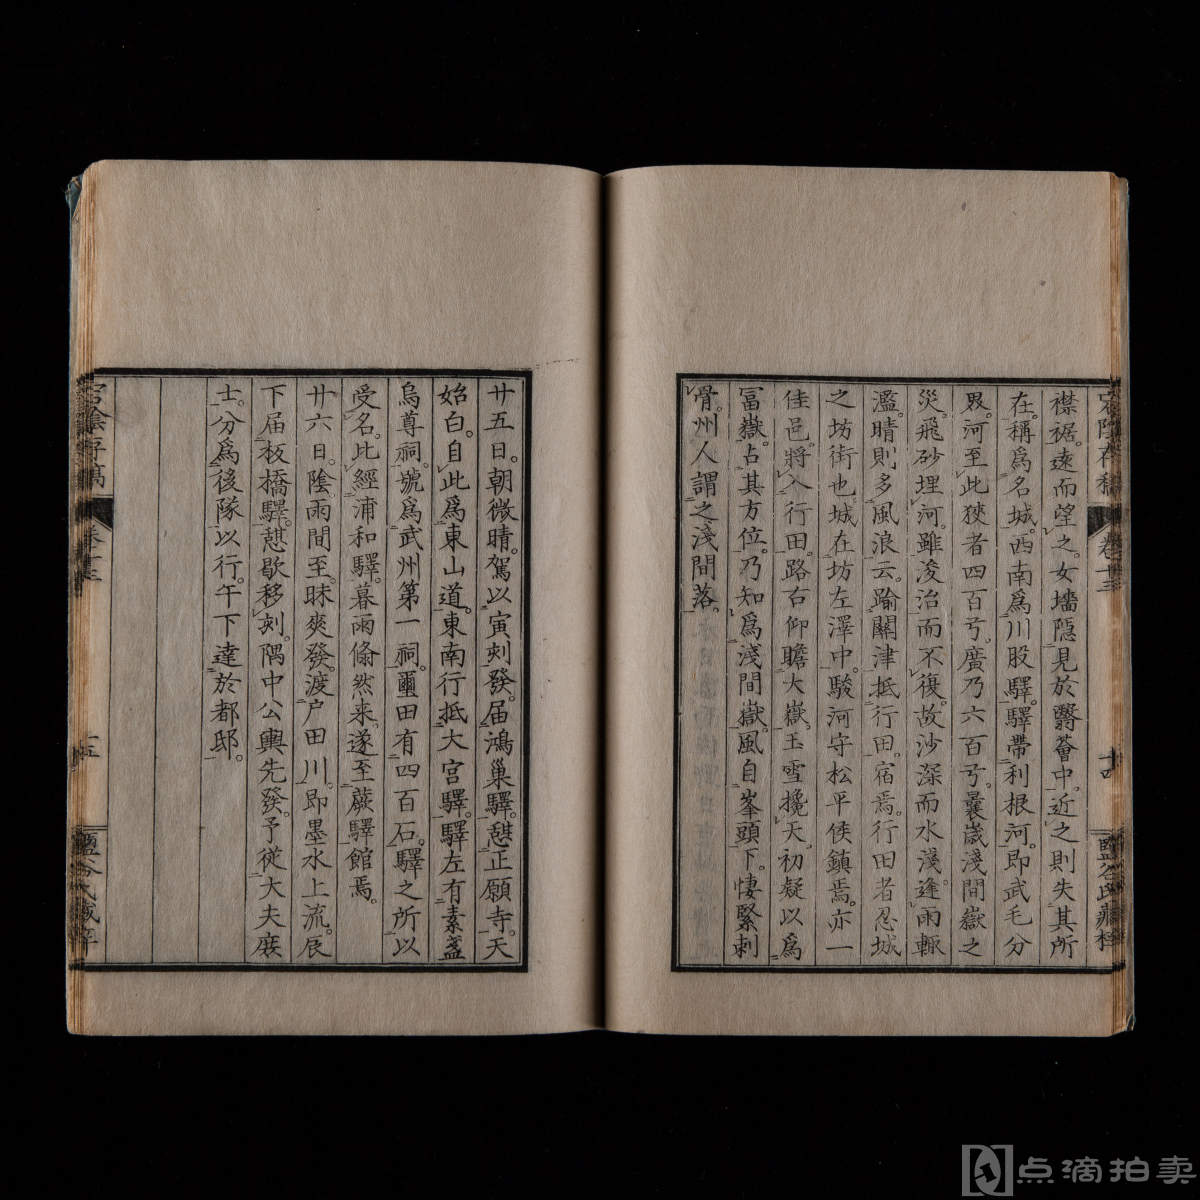 襟裾。遠而望之。女墻隱見於翳薈中。近之則失其所
在。稱爲名城。西南爲川股驛。驛帶利根河。即武毛分
界。河至此狹者四百弓。廣乃六百弓。曩歲淺間嶽之
災。飛砂埋河。雖浚治而不復。故沙深而水淺。逢雨輒
濫。晴則多風浪云。踰關津抵行田。宿焉。行田者忍城
之坊街也。城在坊左澤中。駿河守松平侯鎮焉。亦一
佳邑。將入行田。路右仰瞻大嶽。玉雪攙天。初疑以爲
冨嶽。占其方位。乃知爲淺間嶽。風自峯頭下。悽緊刺
骨。州人謂之淺間落。
十四
鹽谷氏藏
廿五日。朝微晴。駕以寅刻發。届鴻巢驛。憇正願寺。天
始白。自此爲東山道。東南行抵大宮驛。驛左有素盞
烏尊祠。號爲武州第一祠。圭田有四百石。驛之所以
受名。此經浦和驛。暮雨翛然来。遂至蕨驛館焉。
廿六日。陰雨間至。昧爽發。渡戸田川。即墨水上流。辰
下届板橋驛。憇歇移刻。隅中公輿先發。予從大夫庶
士。分爲後隊以行。午下達於都邸。
宕陰存稿
卷十三
十五
鹽谷氏藏
点滴拍卖